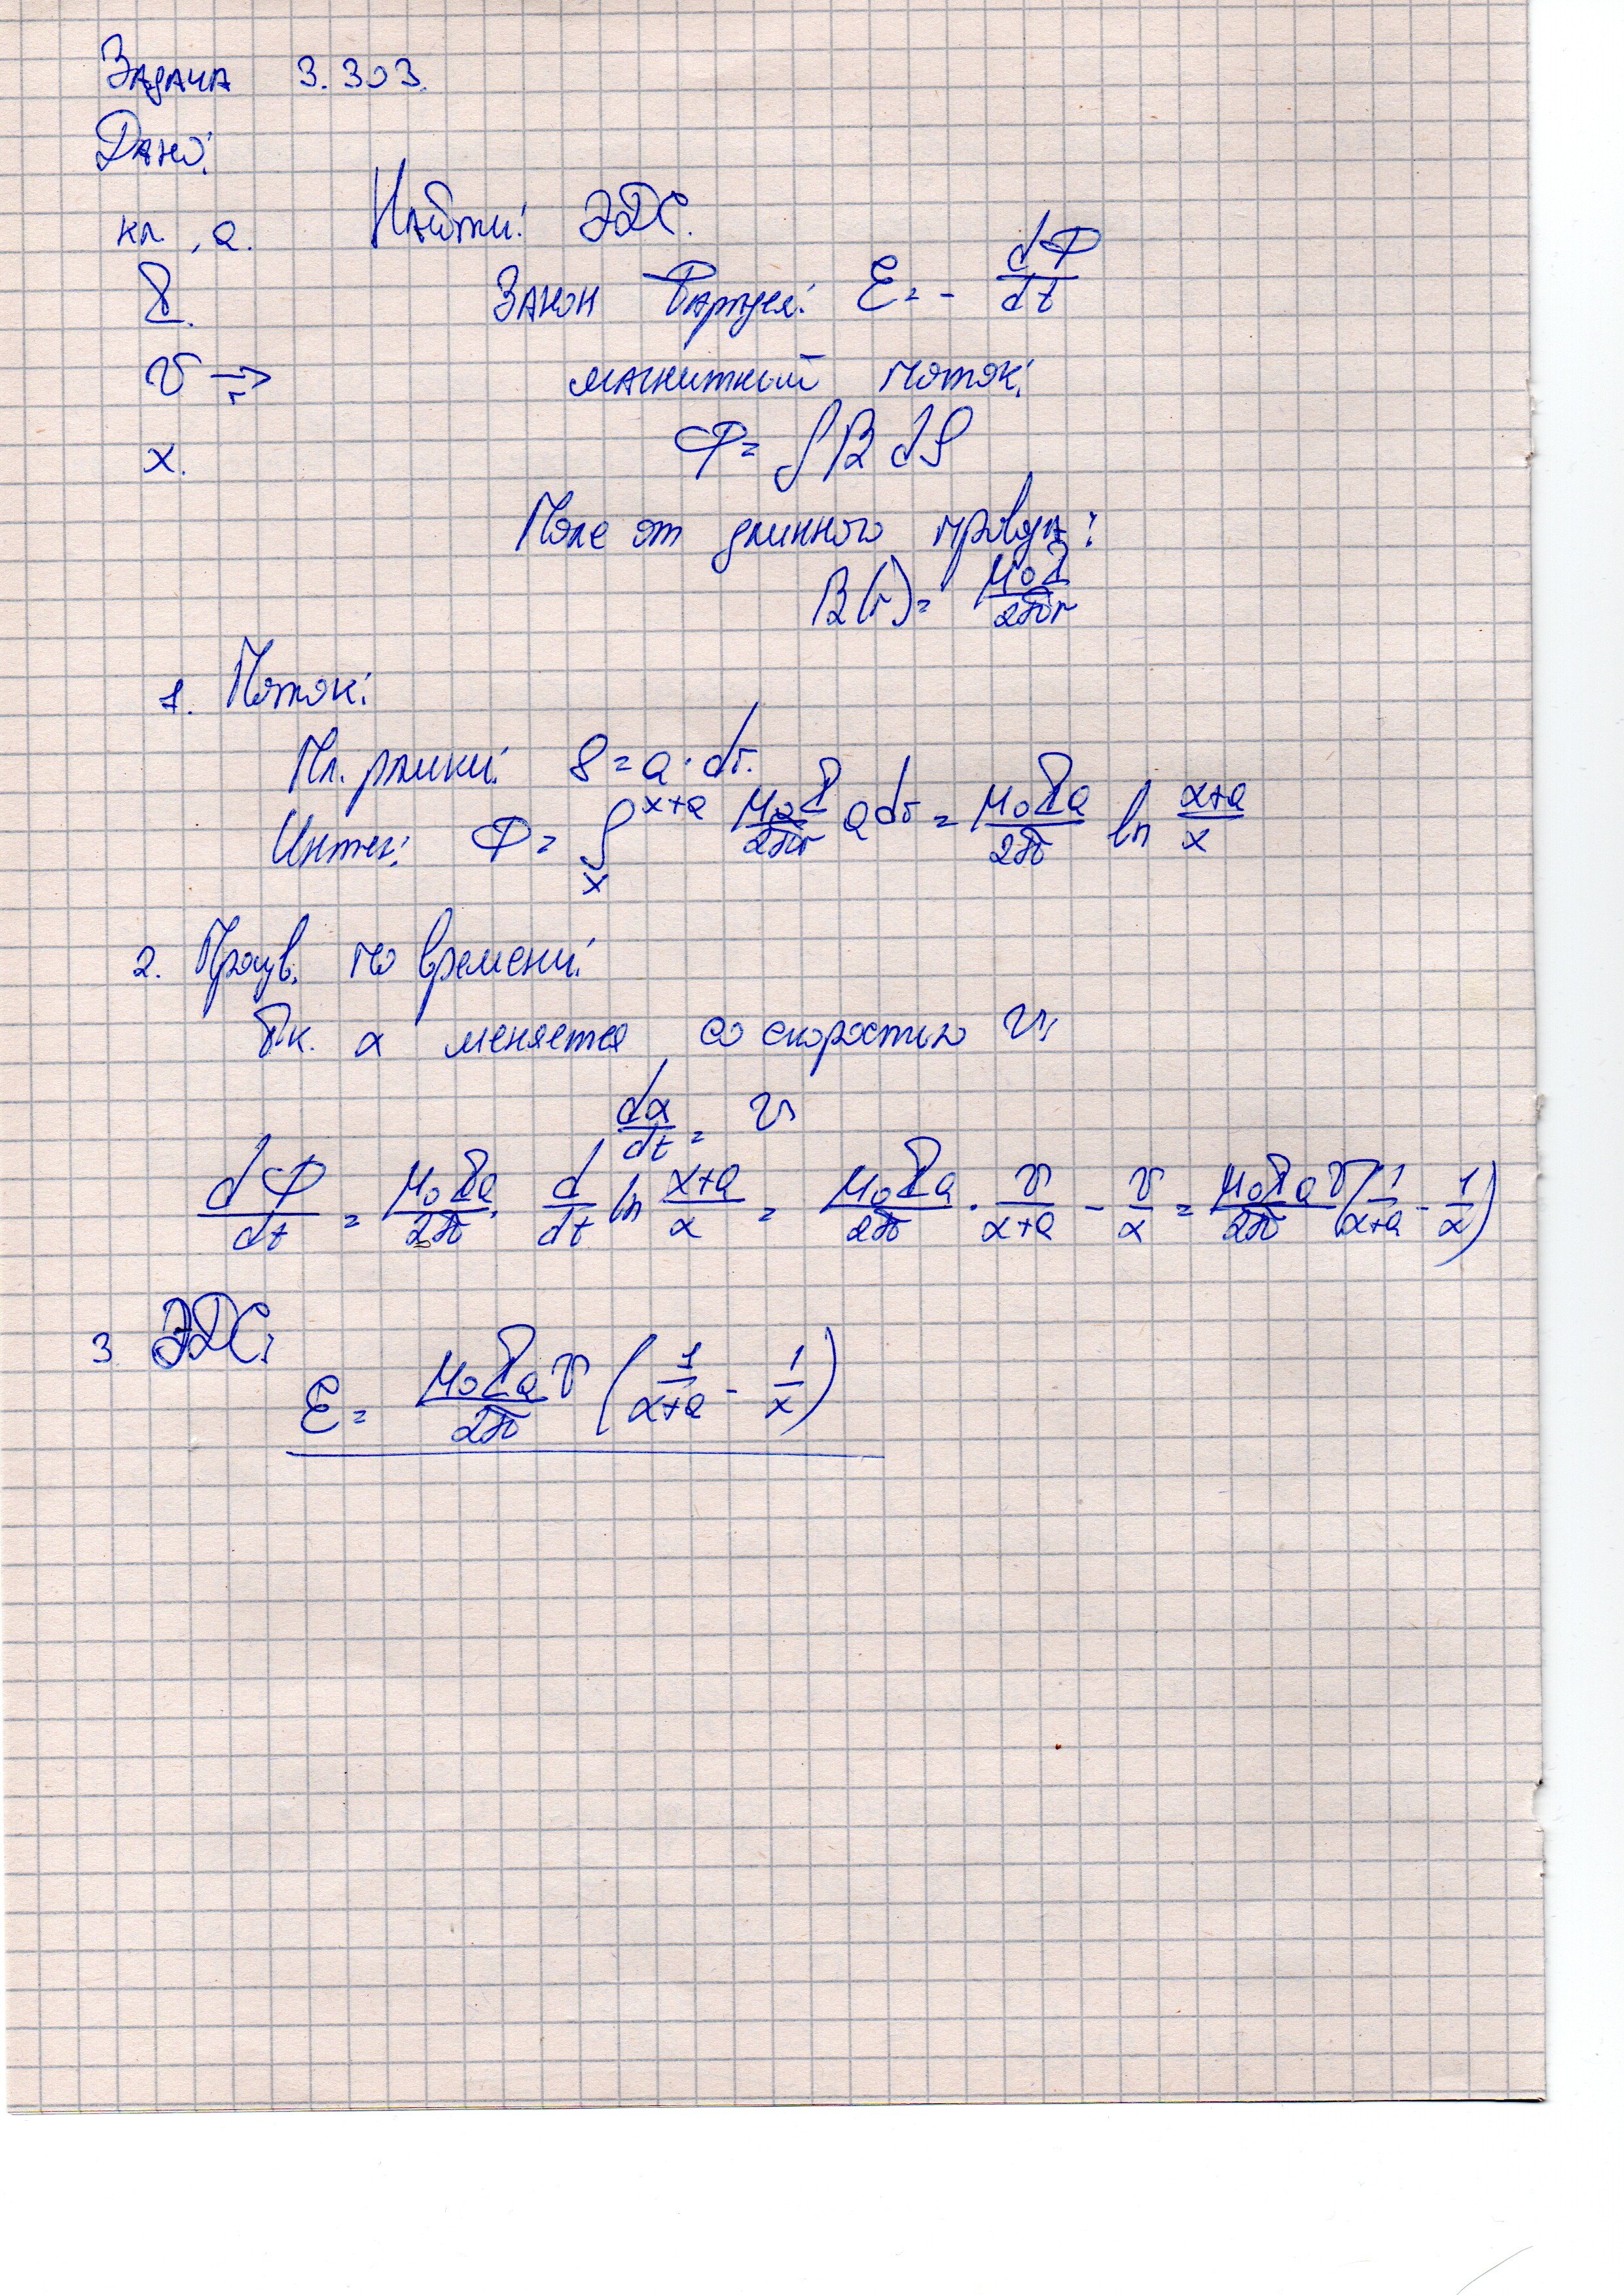 Задача 3.303.
Дано:
кв. , a.
Найти: ЭДС.
I.
Закон Фарадея: ℰ = - dФ/dt
v →
магнитный поток:
Ф = ∫ B dS
x.
Поле от длинного провода:
B(r) = μ₀I/2πr
1. Поток:
Пл. рамки: S = a · dr.
Интег: Ф = ∫ₓˣ⁺ᵃ μ₀I/2πr a dr = μ₀Ia/2π ln x+a/x
2. Произв. по времени:
Тк. x меняется со скоростью v,
dx/dt = v
dФ/dt = μ₀Ia/2π · d/dt ln x+a/x = μ₀Ia/2π · v/x+a - v/x = μ₀Iav/2π (1/x+a - 1/x)
3 ЭДС:
ℰ = μ₀Iav/2π (1/x+a - 1/x)